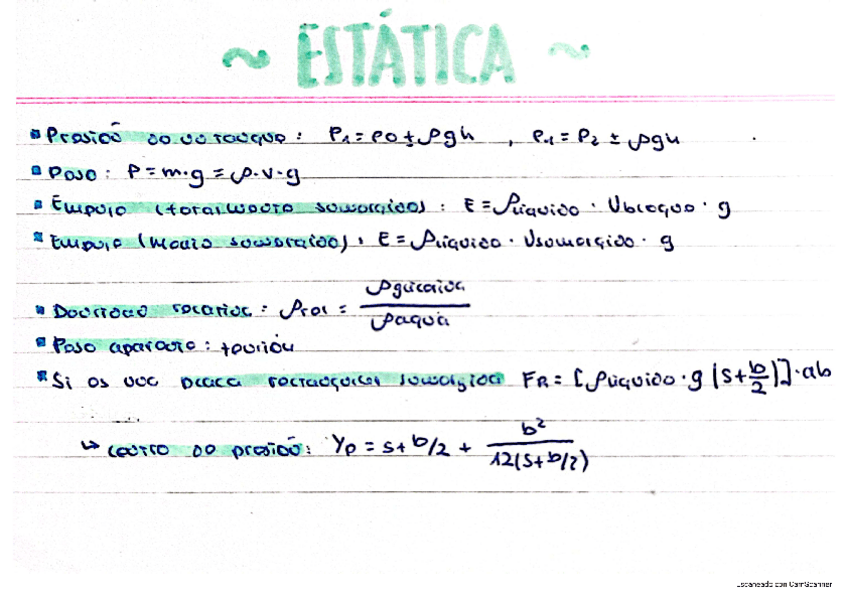 ~ ESTÁTICA ~
Presión de un tanque: P₁ = P0 ± ρgh , P₁ = P₂ ± ρgh
Peso: P = m·g = ρ·V·g
Empuje (totalmente sumergido): E = ρlíquido · Vbloque · g
Empuje (medio sumergido): E = ρlíquido · Vsumergido · g
Densidad relativa: ρrel = ρglicerina / ρagua
Peso aparente: tensión
Si es una placa rectangular sumergida FR = [ρlíquido·g (s+b/2)]·ab
↳ centro de presión: Yp = s + b/2 + b² / 12(s+b/2)
Escaneado con CamScanner